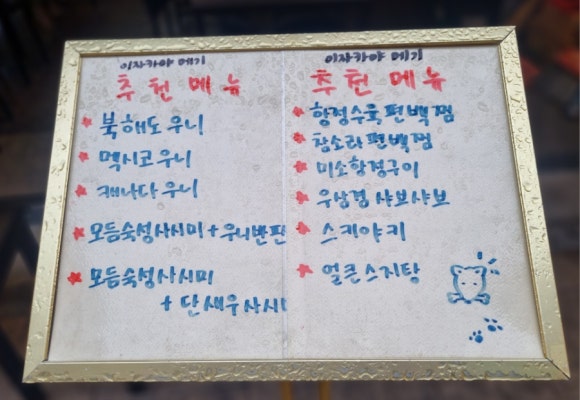 이자카야 메기
추천메뉴
북해도우니
멕시코우니
캐나다우니
모듬숙성사시미+우니반판
모듬숙성사시미
+단새우사시미
이자카야 메기
추천메뉴
항정수육편백찜
참소라편백찜
미소항정구이
우삼겹샤브샤브
스키야키
얼큰스지탕